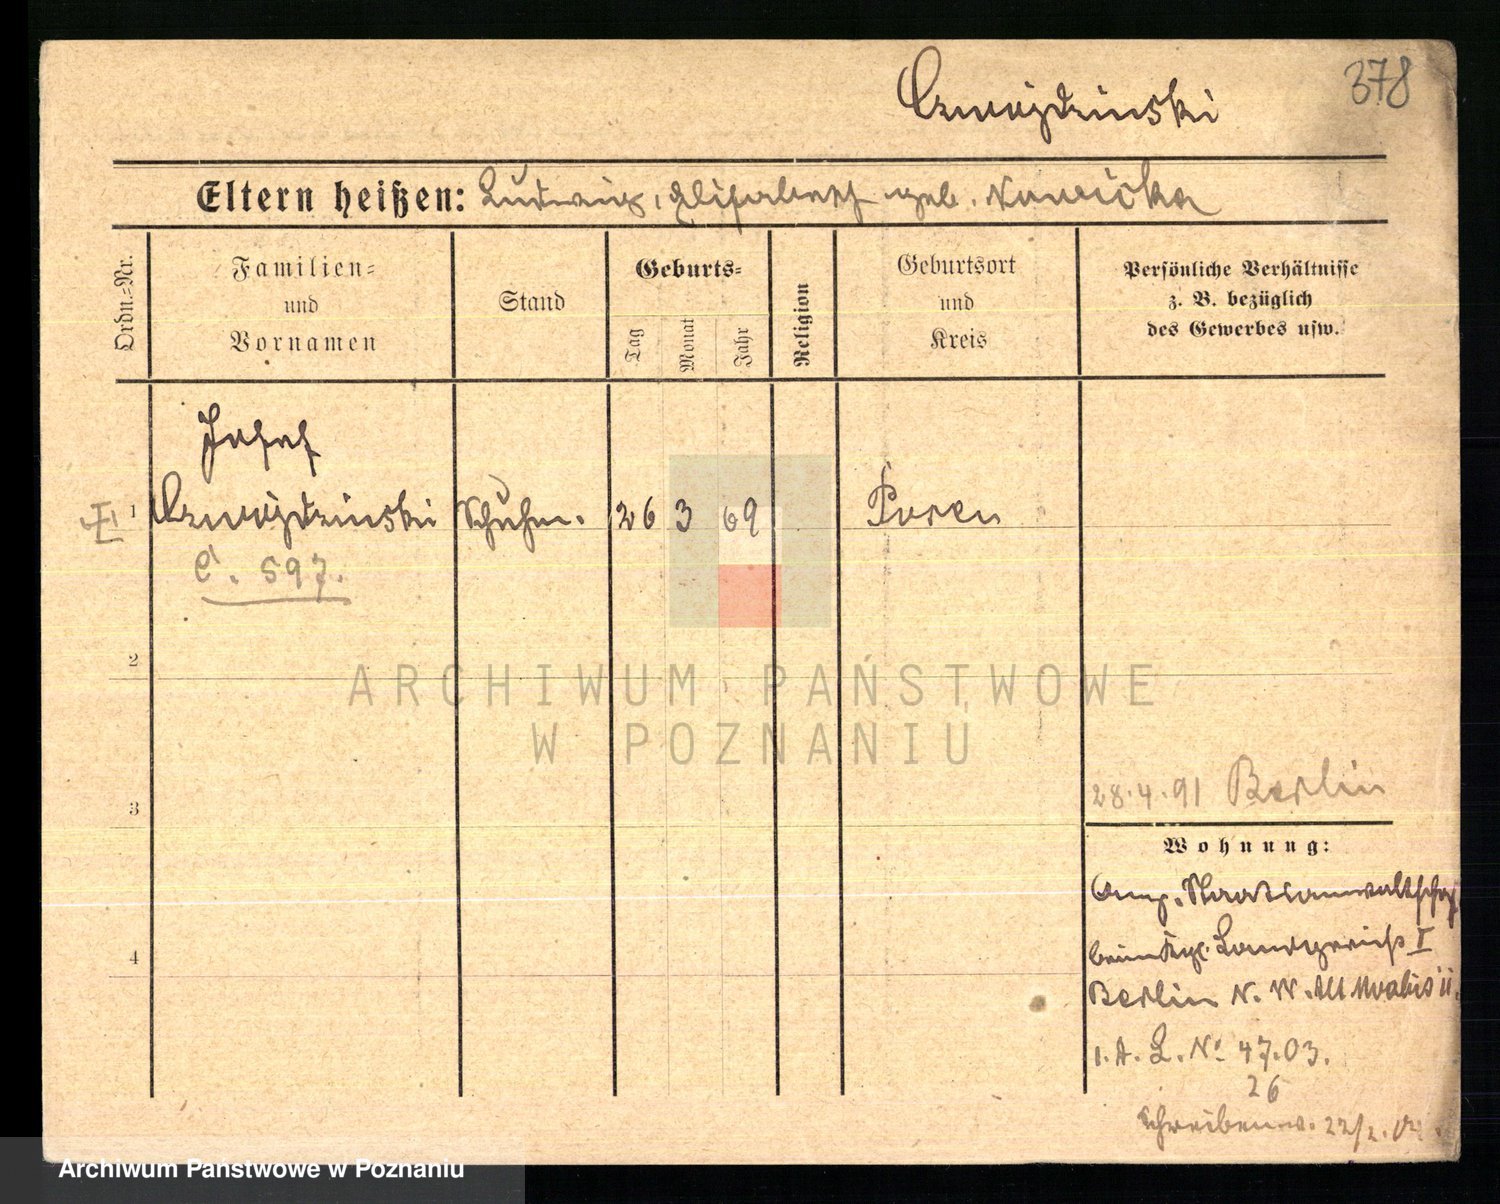 378
Czwojdzinski
Eltern heißen: Ludwig, Elisabeth geb. Nowicka
Ordn.-Nr.
Familien- und Vornamen
Stand
Geburts-
Tag
Monat
Jahr
Religion
Geburtsort und Kreis
Persönliche Verhältnisse z. B. bezüglich des Gewerbes usw.
Josef
1 Czwojdzinski Schuhm. 26 3 69 Posen
C. 597.
2
ARCHIWUM PAŃSTWOWE
W POZNANIU
28.4.91 Berlin
3
Wohnung:
Staatsanwaltschaft
beim Kgl. Landgericht I
4
Berlin N. W. Alt Moabit 11.
1. A. L. No 47.03.
26
Schreiben v. 22/2.04.
Archiwum Państwowe w Poznaniu